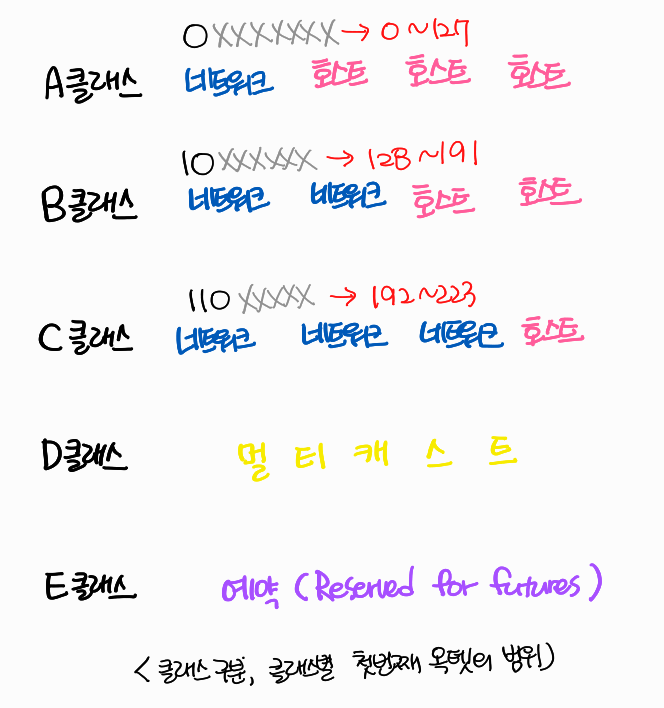 0XXXXXXX → 0 ~127
A클래스 네트워크 호스트 호스트 호스트
10XXXXXX → 128 ~191
B클래스 네트워크 네트워크 호스트 호스트
110XXXXX → 192~223
C클래스 네트워크 네트워크 네트워크 호스트
D클래스 멀티캐스트
E클래스 예약 (Reserved for futures)
<클래스구분, 클래스별 첫번째 옥텟의 범위)